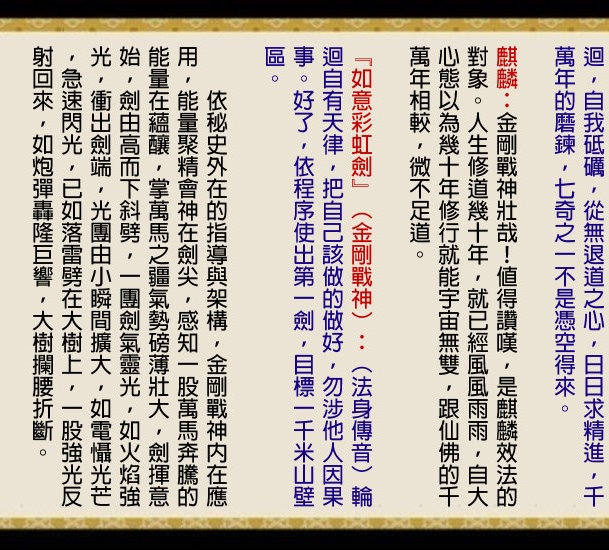 迴，自我砥礪，從無退道之心，日日求精進，千
萬年的磨鍊，七奇之一不是憑空得來。
麒麟：金剛戰神壯哉！值得讚嘆，是麒麟效法的
對象。人生修道幾十年，就已經風風雨雨，自大
心態以為幾十年修行就能宇宙無雙，跟仙佛的千
萬年相較，微不足道。
『如意彩虹劍』（金剛戰神）：（法身傳音）輪
迴自有天律，把自己該做的做好，勿涉他人因果
事。好了，依程序使出第一劍，目標一千米山壁
區。
依秘史外在的指導與架構，金剛戰神內在應
用，能量聚精會神在劍尖，感知一股萬馬奔騰的
能量在蘊釀，掌萬馬之疆氣勢磅薄壯大，劍揮意
始，劍由高而下斜劈，一團劍氣靈光，如火焰強
光，衝出劍端，光團由小瞬間擴大，如電懾光芒
，急速閃光，已如落雷劈在大樹上，一股強光反
射回來，如炮彈轟隆巨響，大樹攔腰折斷。